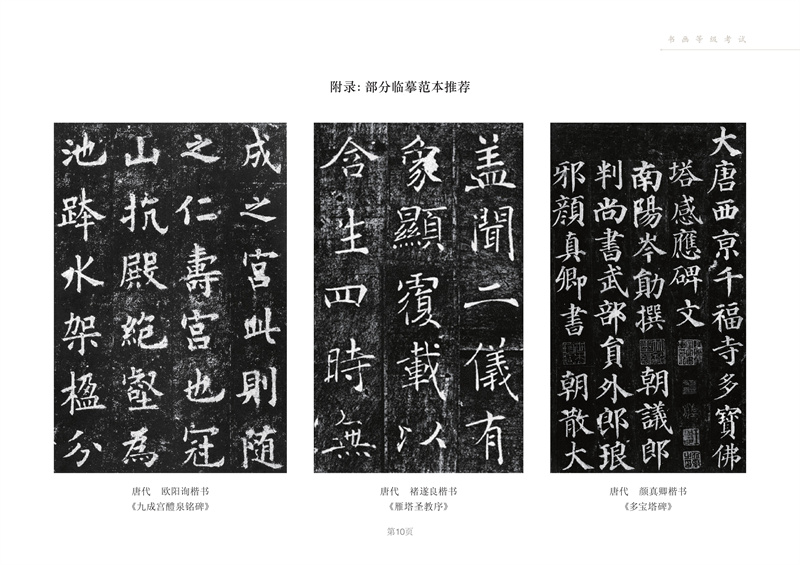 书画等级考试
附录：部分临摹范本推荐
成之宮此則随
之仁壽宮也冠
山抗殿絕壑為
池跨水架楹分
盖聞二儀有
象顯覆載以
含生四時無
大唐西京千福寺多寶佛
塔感應碑文
南陽岑勛撰 朝議郎
判尚書武部員外郎琅
邪顏真卿書 朝散大
唐代 欧阳询楷书
《九成宫醴泉铭碑》
唐代 褚遂良楷书
《雁塔圣教序》
唐代 颜真卿楷书
《多宝塔碑》
第10页